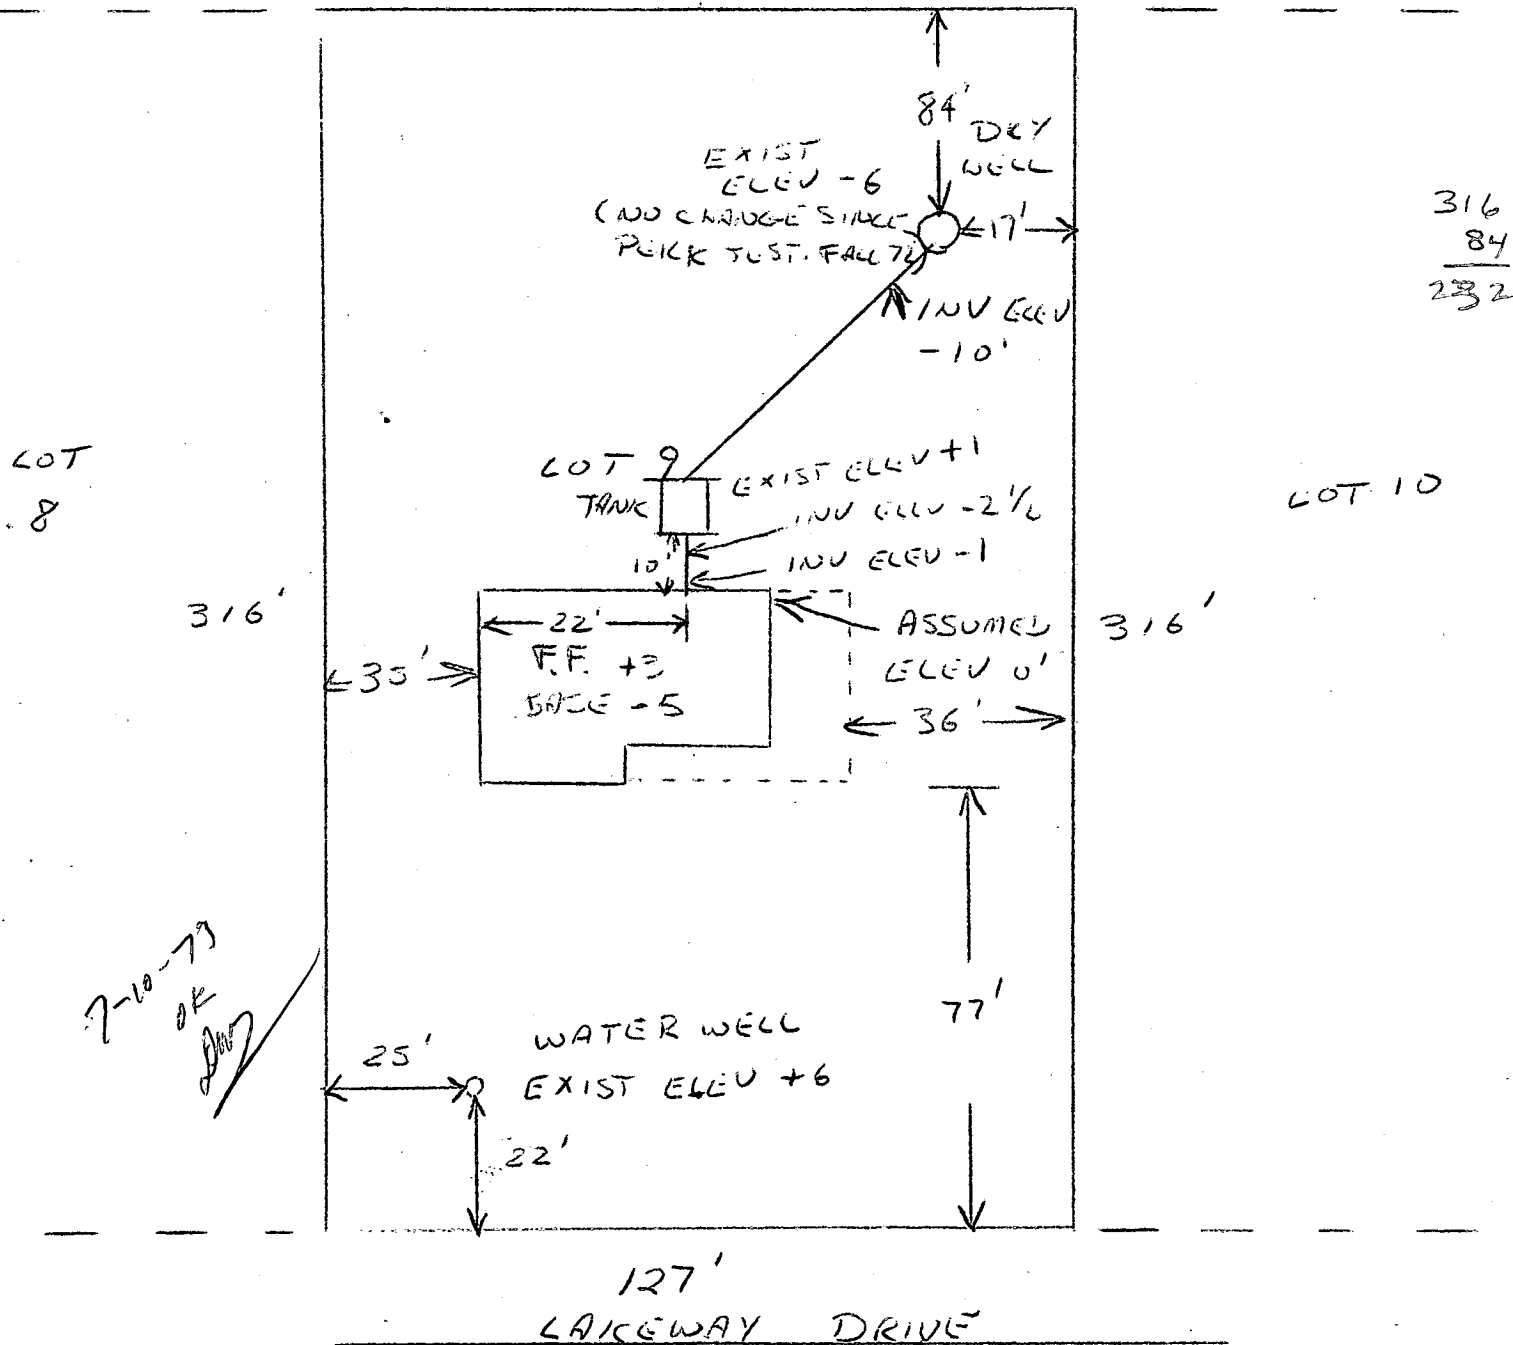 84'
DRY
WELL
EXIST
ELEV -6
(NO CHANGE SINCE
PERK TEST. FALL 72)
17'
316
84
232
INV ELEV
-10'
LOT
8
LOT 9
TANK
EXIST ELEV +1
INV ELEV -2 1/2
INV ELEV -1
10'
LOT 10
316'
22'
F.F. +3
BASE -5
35'
ASSUMED
ELEV 0'
316'
36'
7-10-73
OK
77'
WATER WELL
EXIST ELEV +6
25'
22'
127'
LAKEWAY DRIVE